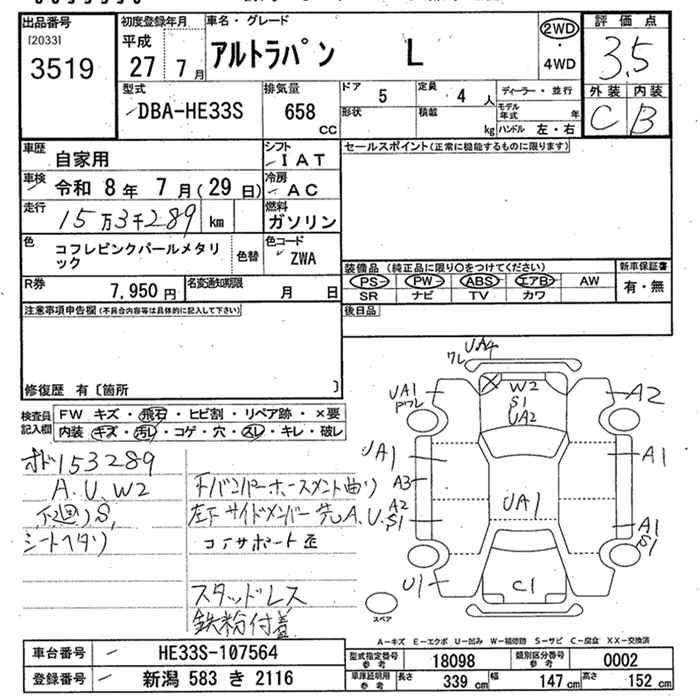 出品番号
[2033]
3519
初度登録年月
平成
27年 7月
車名・グレード
アルトラパン L
2WD
・
4WD
評価点
3.5
外装 内装
C B
型式
DBA-HE33S
排気量
658 cc
ドア 5
定員 4 人
形状
積載 kg
ディーラー・並行
モデル年式 年
ハンドル 左・右
車歴
自家用
シフト
IAT
セールスポイント(正常に機能するものに限ります)
車検 令和 8年 7月(29日)
冷房
AC
走行 15万3千289 km
燃料
ガソリン
色
コフレピンクパールメタリック
色替
色コード
ZWA
R券 7,950円
名変通知期限 月 日
装備品 (純正品に限り○をつけてください)
PS PW ABS エアB AW
SR ナビ TV カワ
新車保証書
有・無
後日品
注意事項申告欄(不具合内容等は具体的に記入して下さい)
修復歴 有〔箇所 〕
検査員記入欄
FW キズ・飛石・ヒビ割・リペア跡・×要
内装・キズ・汚レ・コゲ・穴・スレ・キレ・破レ
オド153289
A.U.W2
下廻りS,
シートヘタリ
下/バンパーホースメント曲り
左下サイドメンバー先A.U.S1
コアサポート歪
スタッドレス
鉄粉付着
UA4
ワレ
UA1
Pワレ
W2
S1
UA2
A2
UA1
A1
A3
A2
UA1
A1
S1
U1
C1
スペア
A-キズ E-エクボ U-凹み W-補修跡 S-サビ C-腐食 XX-交換済
車台番号 HE33S-107564
登録番号 新潟 583 き 2116
型式指定番号参考 18098
類別区分番号参考 0002
車庫証明用参考 長さ 339 cm 幅 147 cm 高さ 152 cm